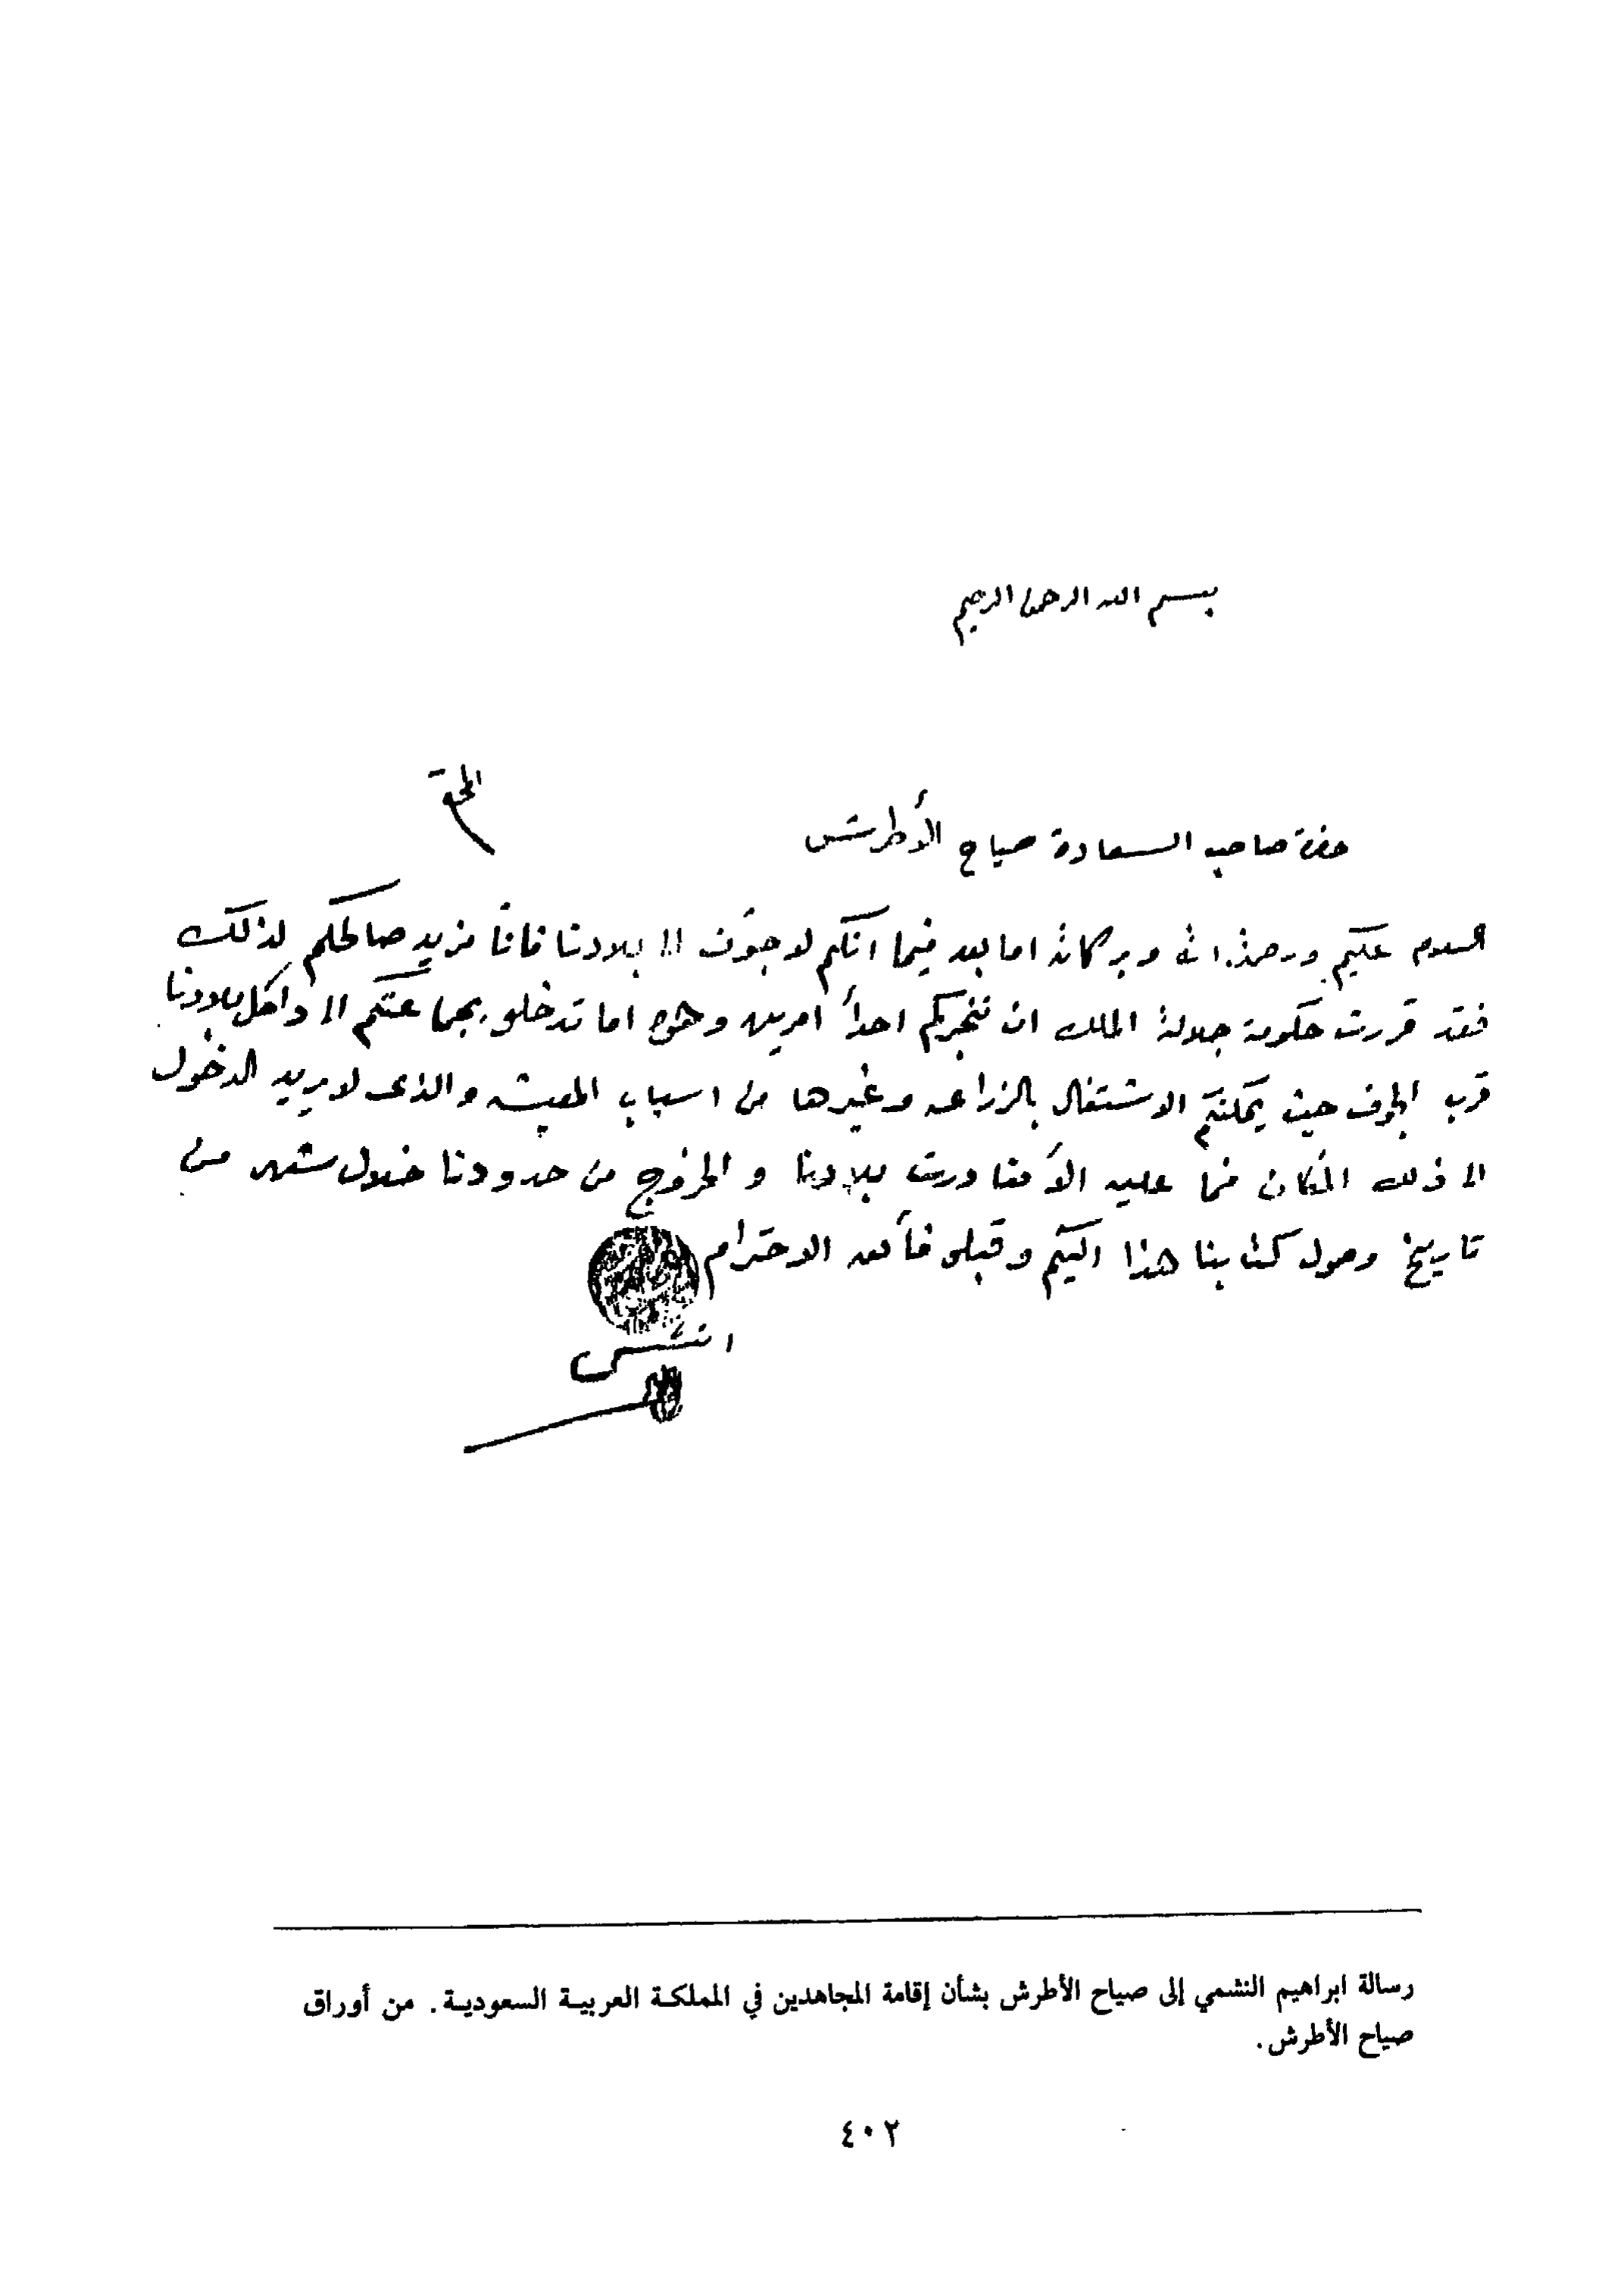 بسم الله الرحمن الرحيم
المحترم
حضرة صاحب السعادة صياح الأطرش
السلام عليكم ورحمة الله وبركاته اما بعد فيما انكم لاجؤن الا بلادنا فاناّ نريد صالحكم لذالك
فقد قررت حكومة جلالة الملك ان نخبركم احدأ امرين وهو اما تدخلو بجماعتكم الا داخل بلادنا
قرب الجوف حيث يمكنكم الاشتغال بالزراعه وغيرها من اسباب المعيشه والذى لا يريد الدخول
الا ذلك المكان فما عليه الأ مغادرت بلادنا و الخروج من حدودنا خلال شهر من
تاريخ وصول كتابنا هذا اليكم وقبلو فأىق الاحترام
رسالة ابراهيم النشمي إلى صياح الأطرش بشأن إقامة المجاهدين في المملكة العربية السعودية. من أوراق
صياح الأطرش.
٤٠٢